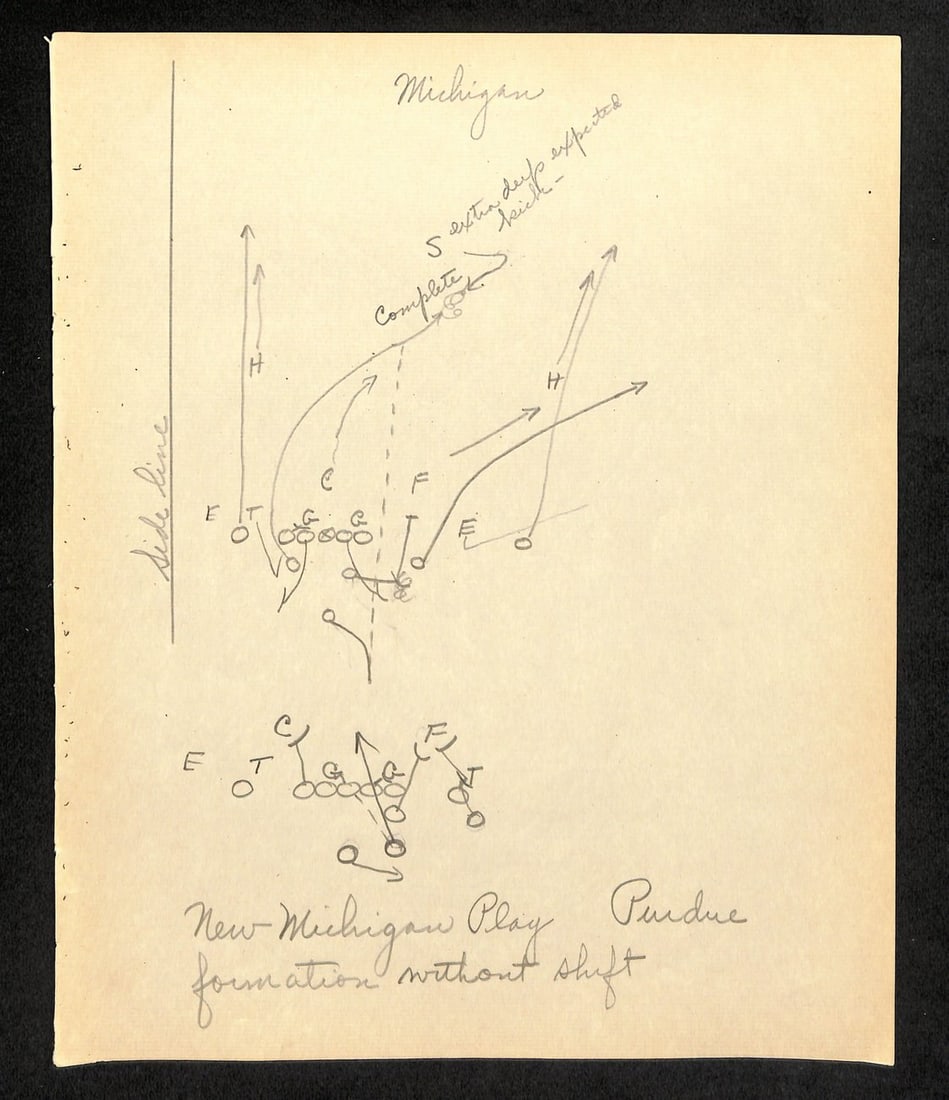 Michigan
S extra deep expected
kick -
Complete
H
H
Side line
C F
E T G G T E
C F
E T G G T
New Michigan Play Purdue
formation without shift